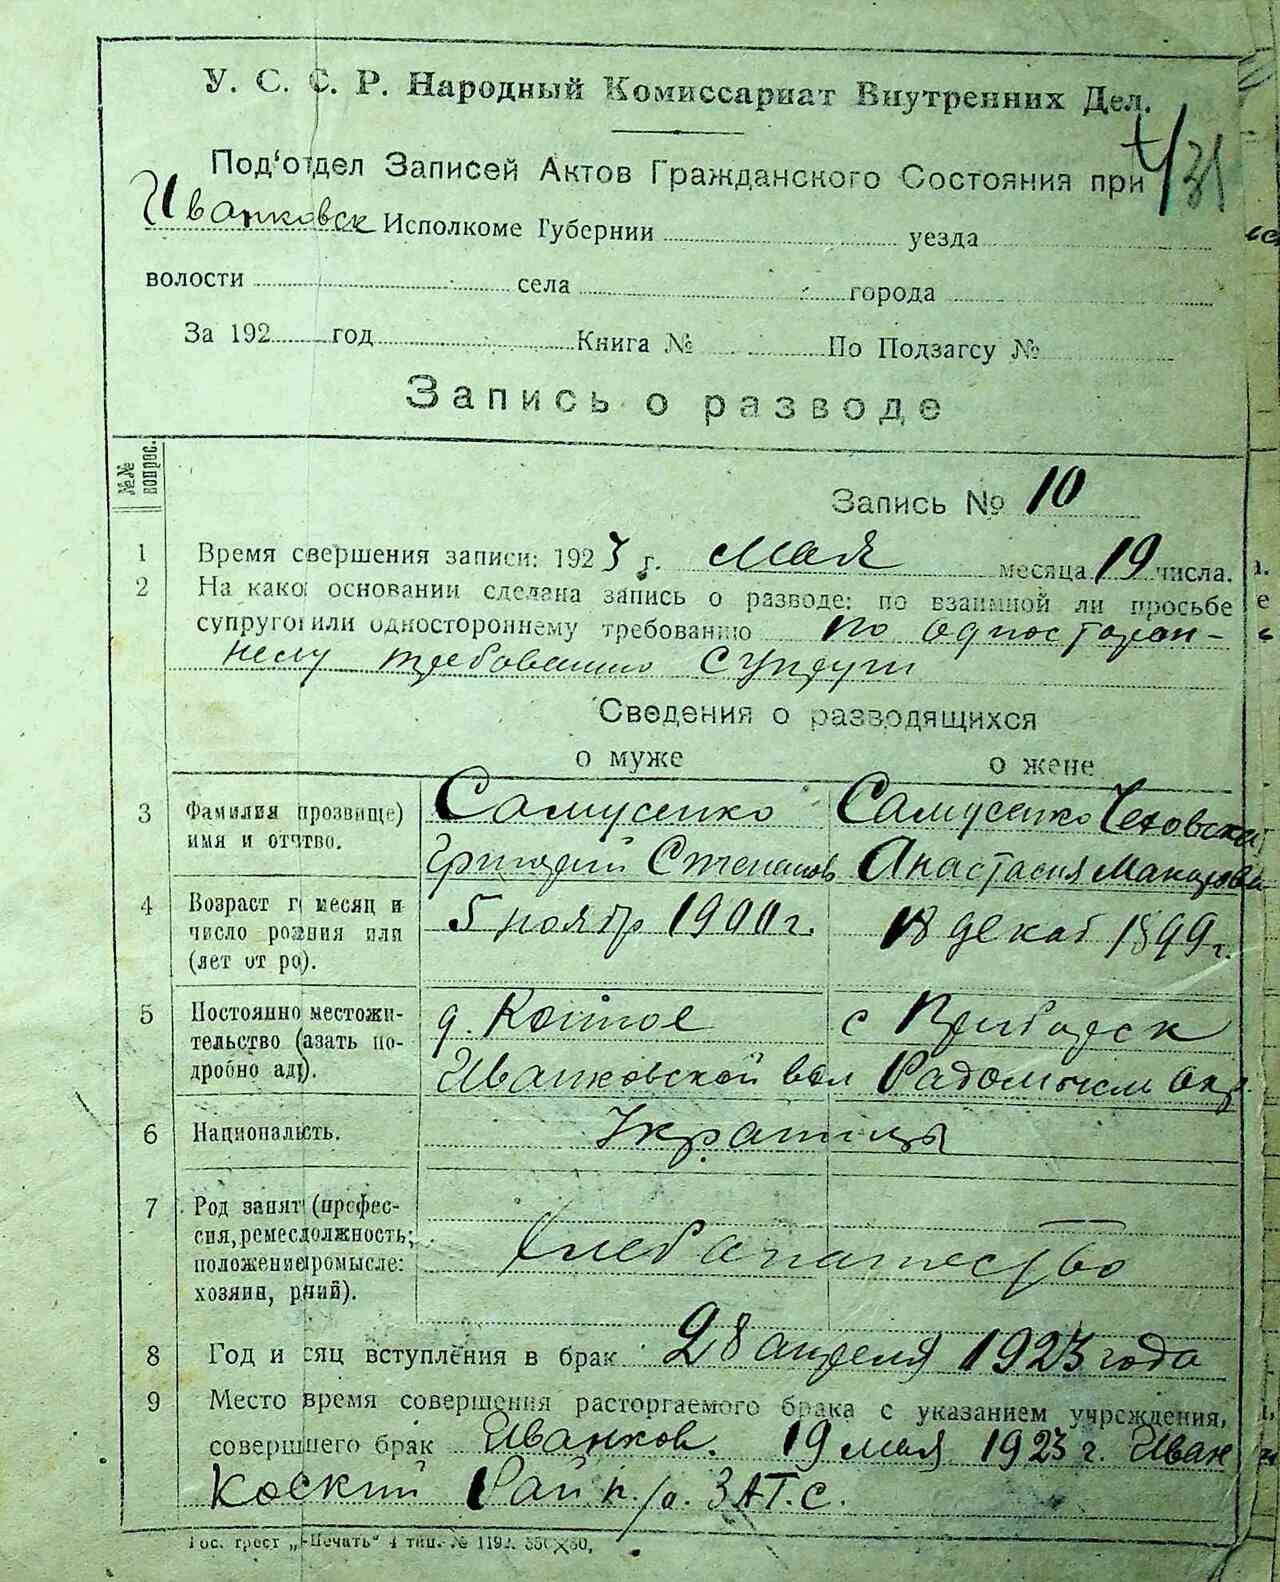 У. С. С. Р. Народный Комиссариат Внутренних Дел.
Под'отдел Записей Актов Гражданского Состояния при
Иванковск Исполкоме Губернии уезда
волости села города
За 192 год Книга № По Подзагсу №
Запись о разводе
№№ вопрос.
Запись № 10
1 Время свершения записи: 1923 г. мая месяца 19 числа.
2 На како основании сделана запись о разводе: по взаимной ли просьбе
супруго или одностороннему требованию по односторон-
нему требованию супруги
Сведения о разводящихся
о муже о жене
3 Фамилия прозвище) Самусенко Самусенко Чеховска
имя и отчтво. Григорий Степанов Анастасия Макарова
4 Возраст г месяц и 5 ноябр 1900 г. 18 декаб 1899 г.
число рождния или
(лет от ро).
5 Постоянно местожи- д. с
тельство (азать по- Иванковской вол Радомысл окр
дробно ад).
6 Национальсть. Украинцы
7 Род занят (профес-
сия, ремес должность; Хлебопашество
положение промысле:
хозяин, рчий).
8 Год и сяц вступления в брак 28 апреля 1923 года
9 Место время совершения расторгаемого брака с указанием учреждения,
соверш его брак Иванков. 19 мая 1923 г. Иван
коский Рай п/о. ЗАГС.
Гос. трест „Печать“ 4 тип. № 1192.